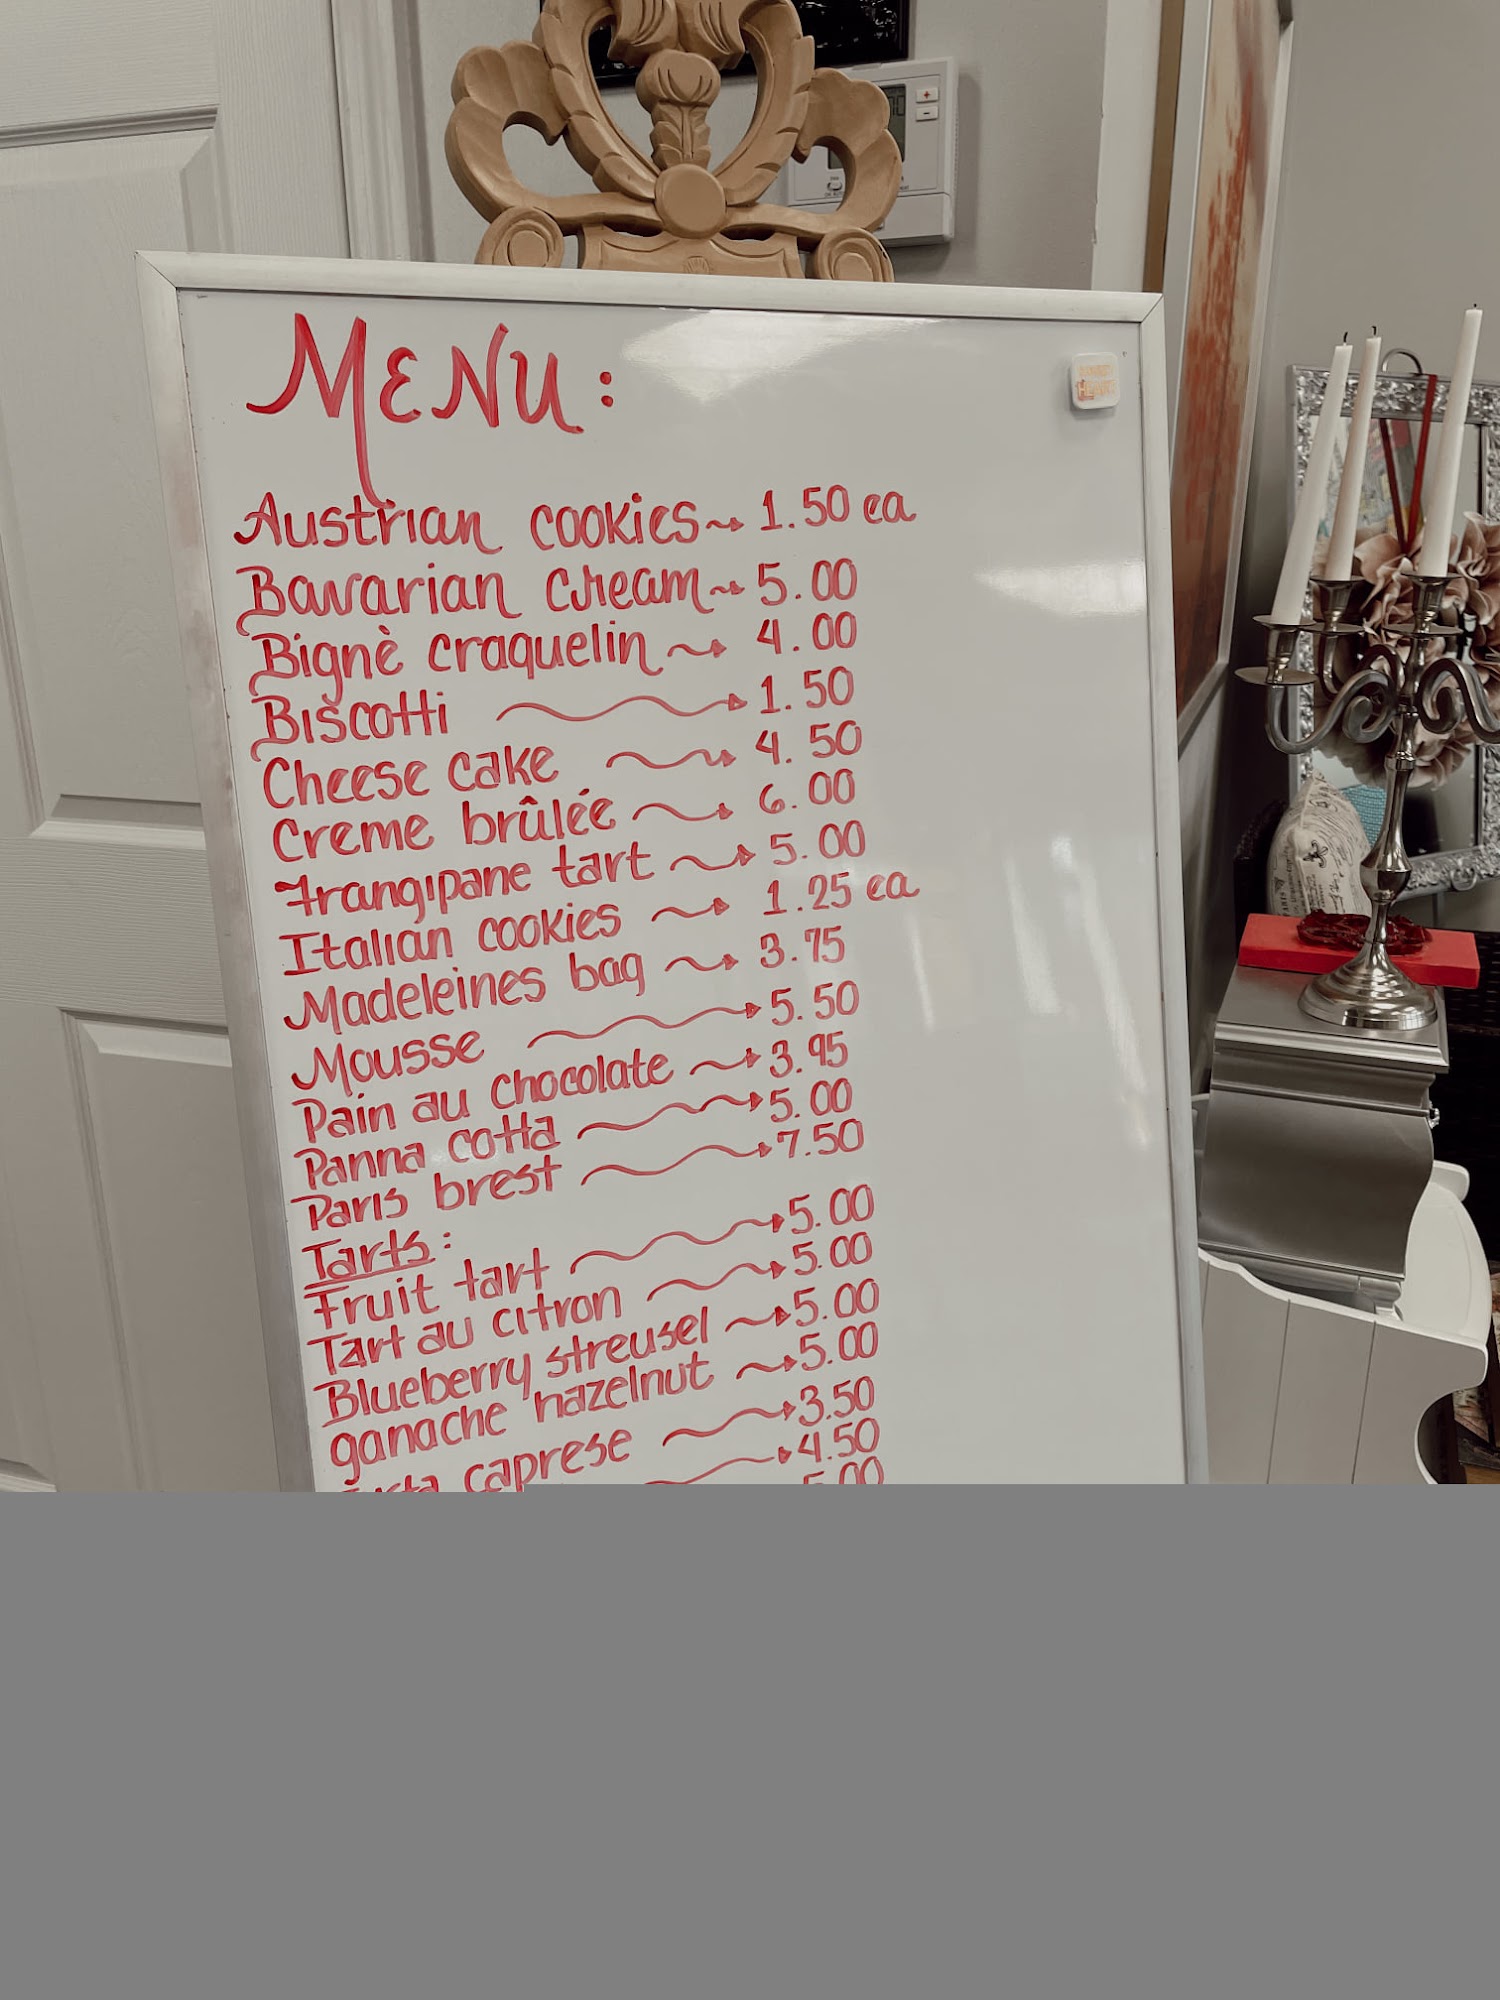 MENU:
Austrian cookies 1.50 ea
Bavarian cream 5.00
Bignè craquelin 4.00
Biscotti 1.50
Cheese cake 4.50
Creme brûlée 6.00
Frangipane tart 5.00
Italian cookies 1.25 ea
Madeleines bag 3.75
Mousse 5.50
Pain au chocolate 3.95
Panna cotta 5.00
Paris brest 7.50
Tarts:
Fruit tart 5.00
Tart au citron 5.00
Blueberry streusel 5.00
ganache hazelnut 5.00
caprese 3.50
4.50
5.00